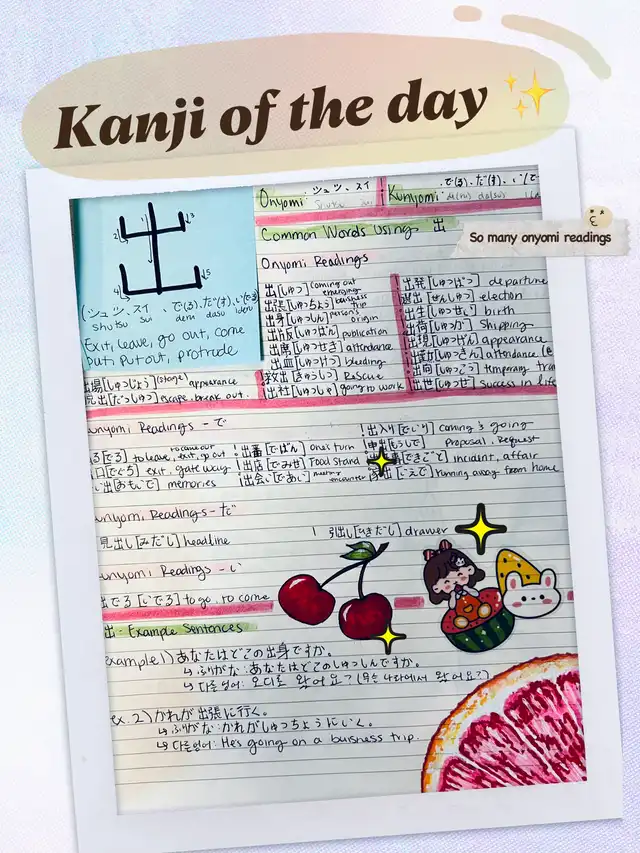 Kanji of the day
Onyomi シュツ、スイ
shutsu sui
Kunyomi で(る)、だ(す)、い(で
de(ru) da(su) i(
So many onyomi readings
Common Words Using 出
出
1 2 3 4 5
(シュツ、スイ、で(る)、だ(す)、い(でる)
shutsu sui deru dasu ideru
Exit, leave, go out, come
out, put out, protrude
Onyomi Readings
出[しゅつ] coming out emerging
出張[しゅっちょう] buisness trip
出身[しゅっしん] person's origin
出版[しゅっぱん] publication
出席[しゅっせき] attendance
出血[しゅっけつ] bleeding
救出[きゅうしゅつ] Rescue
出社[しゅっしゃ] going to work
出発[しゅっぱつ] departure
選出[せんしゅつ] election
出生[しゅっせい] birth
出荷[しゅっか] Shipping
出現[しゅつげん] appearance
出勤[しゅっきん] attendance (@
出向[しゅっこう] temporary tran
出世[しゅっせ] success in life
出場[しゅつじょう] (stage) appearance
脱出[だっしゅつ] escape, break out
unyomi Readings - で
る[でる] to leave, exit, go out
口[でぐち] exit, gateway
い出[おもいで] memories
出番[でばん] one's turn
出店[でみせ] Food Stand
出会い[であい] meeting encounter
出入り[でいり] coming & going
申出[もうしで] Proposal, Request
[できごと] incident, affair
出[いえで] running away from home
unyomi Readings - だ
見出し[みだし] headline
引出し[ひきだし] drawer
unyomi Readings - い
出でる[いでる] to go, to come
出 - Example Sentences
example 1) あなたはどこの出身ですか。
↳ ふりがな: あなたはどこのしゅっしんですか。
↳ 다른언어: 어디를 왔어요? (무슨 나라에서 왔어요?)
ex. 2) かれが出張に行く。
↳ ふりがな: かれがしゅっちょうにいく。
↳ 다른언어: He's going on a buisness trip.